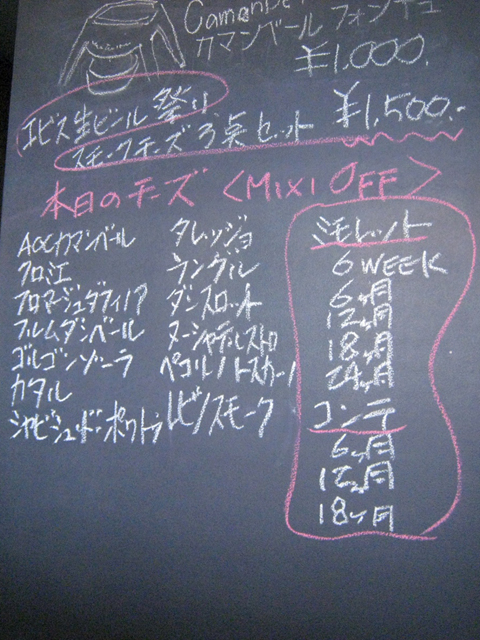 カマンベール フォンデュ
¥1,000.
エビス生ビール 祭り
スモークチーズ3点セット ¥1,500.-
本日のチーズ <MIXI OFF>
AOCカマンベール
クロミエ
フロマージュダフィノア
フルムダンベール
ゴルゴンゾーラ
カンタル
シャビシュードポワトゥ
タレッジョ
ラングル
ダンスロット
ヌーシャテルストロ
ペコリーノトスカーノ
ミモレット
6 WEEK
6ヶ月
12ヶ月
18ヶ月
24ヶ月
コンテ
6ヶ月
12ヶ月
18ヶ月